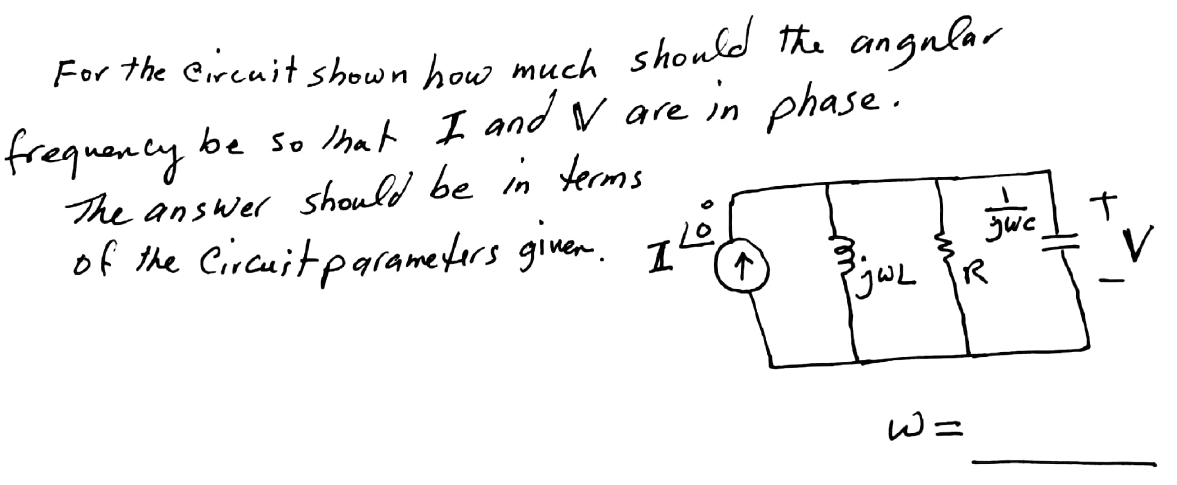 For the Circuit shown how much should the angular
frequency be so that I and V are in phase.
The answer should be in terms
of the Circuit parameters given.
I∠0°
↑
jωL
R
1/jωc
+
V
−
ω = ____